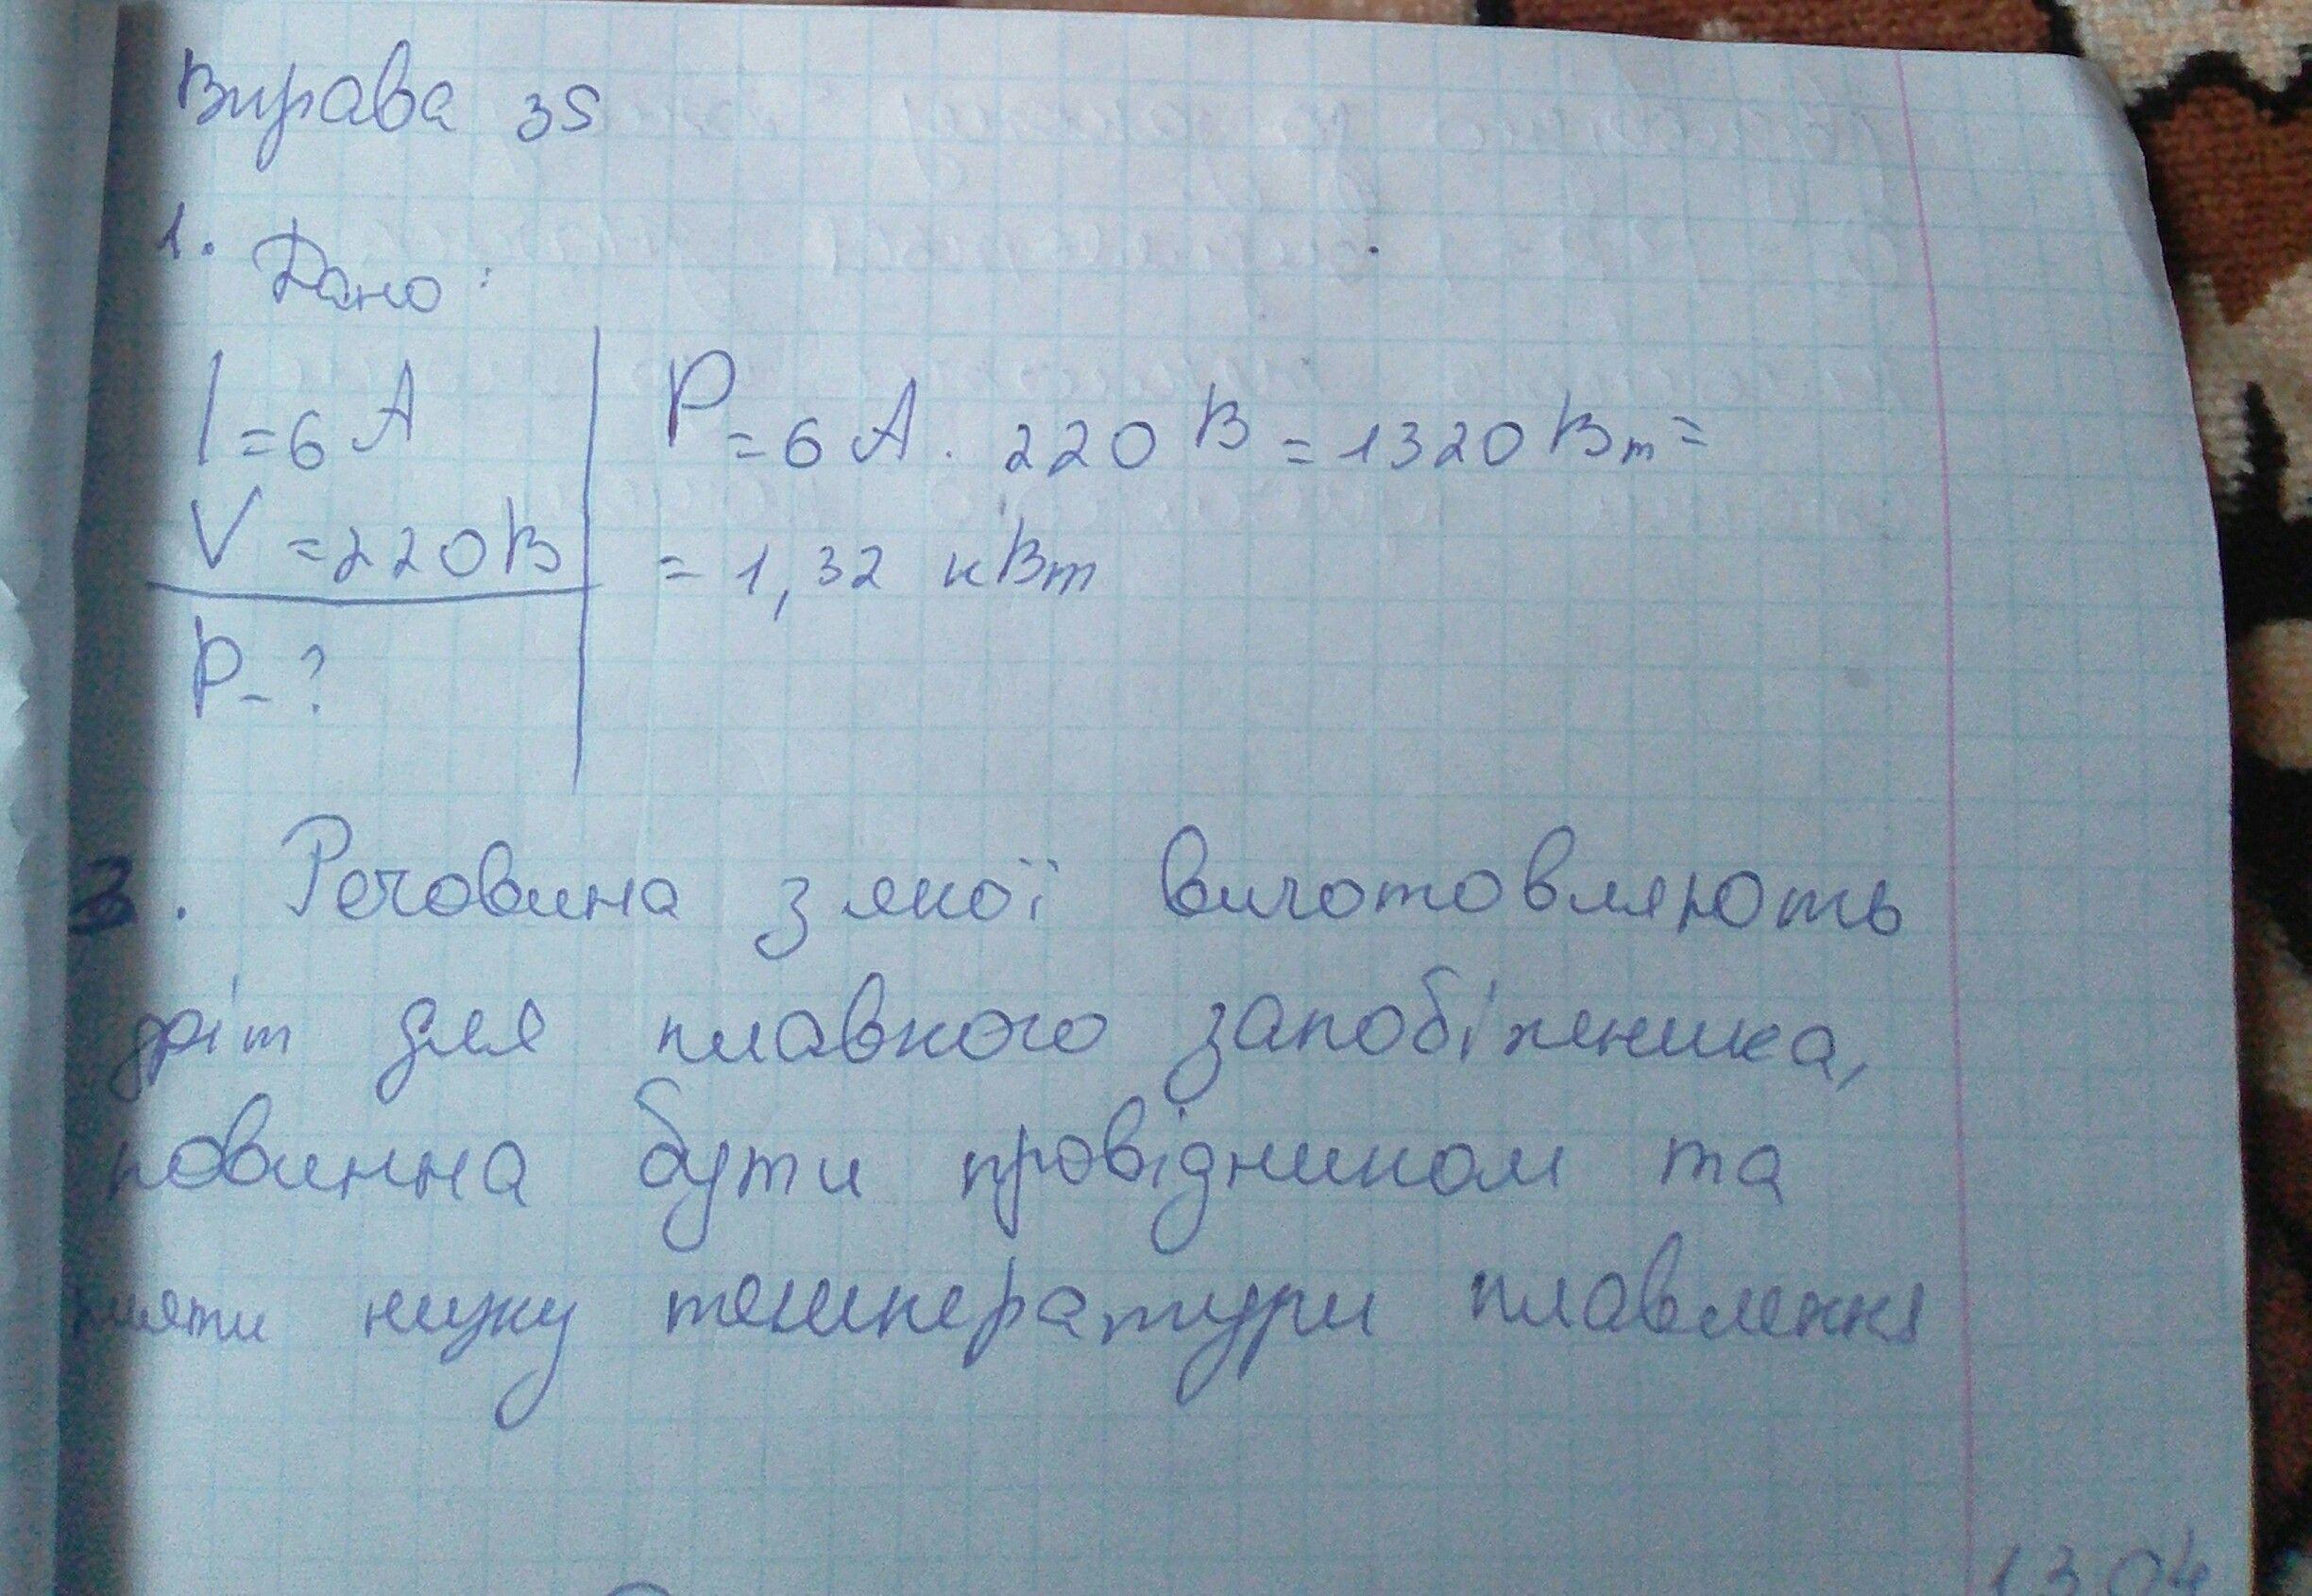 Вправа 35
1. Дано:
I = 6 А
V = 220 В
P - ?
P = 6 А · 220 В = 1320 Вт =
= 1,32 кВт
3. Речовина з якої виготовляють
дріт для плавкого запобіжника,
повинна бути провідником та
мати нижу температури плавлення
13.04